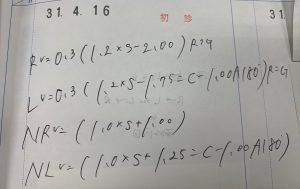 31.4.16 初診 31.
RV=0.3(1.2×S-2.00) R>G
LV=0.3(1.2×S-1.75=C-1.00A180°) R=G
NRV=(1.0×S+1.00)
NLV=(1.0×S+1.25=C-1.00A180)